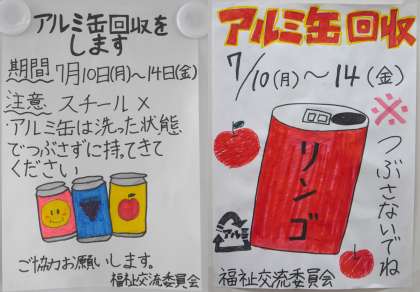 アルミ缶回収を
します
期間 7月10日(月)～14日(金)
注意 スチール×
・アルミ缶は洗った状態
でつぶさずに持ってきて
ください
ご協力お願いします。
福祉交流委員会
アルミ缶回収
7/10(月)～14(金)
※つぶさないでね
リンゴ
アルミ
福祉交流委員会